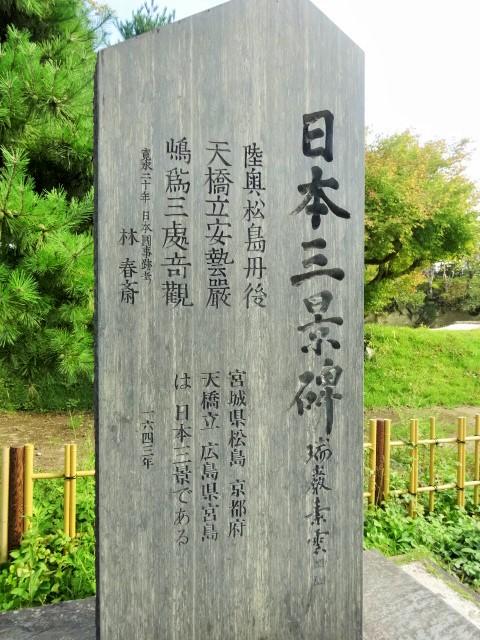 日本三景碑
瑞巌素雲
陸奥松島丹後
天橋立安藝嚴
嶋爲三處奇觀
寛永二十年 日本國事跡考
林 春斎
宮城県松島 京都府
天橋立 広島県宮島
は 日本三景である
一六四三年